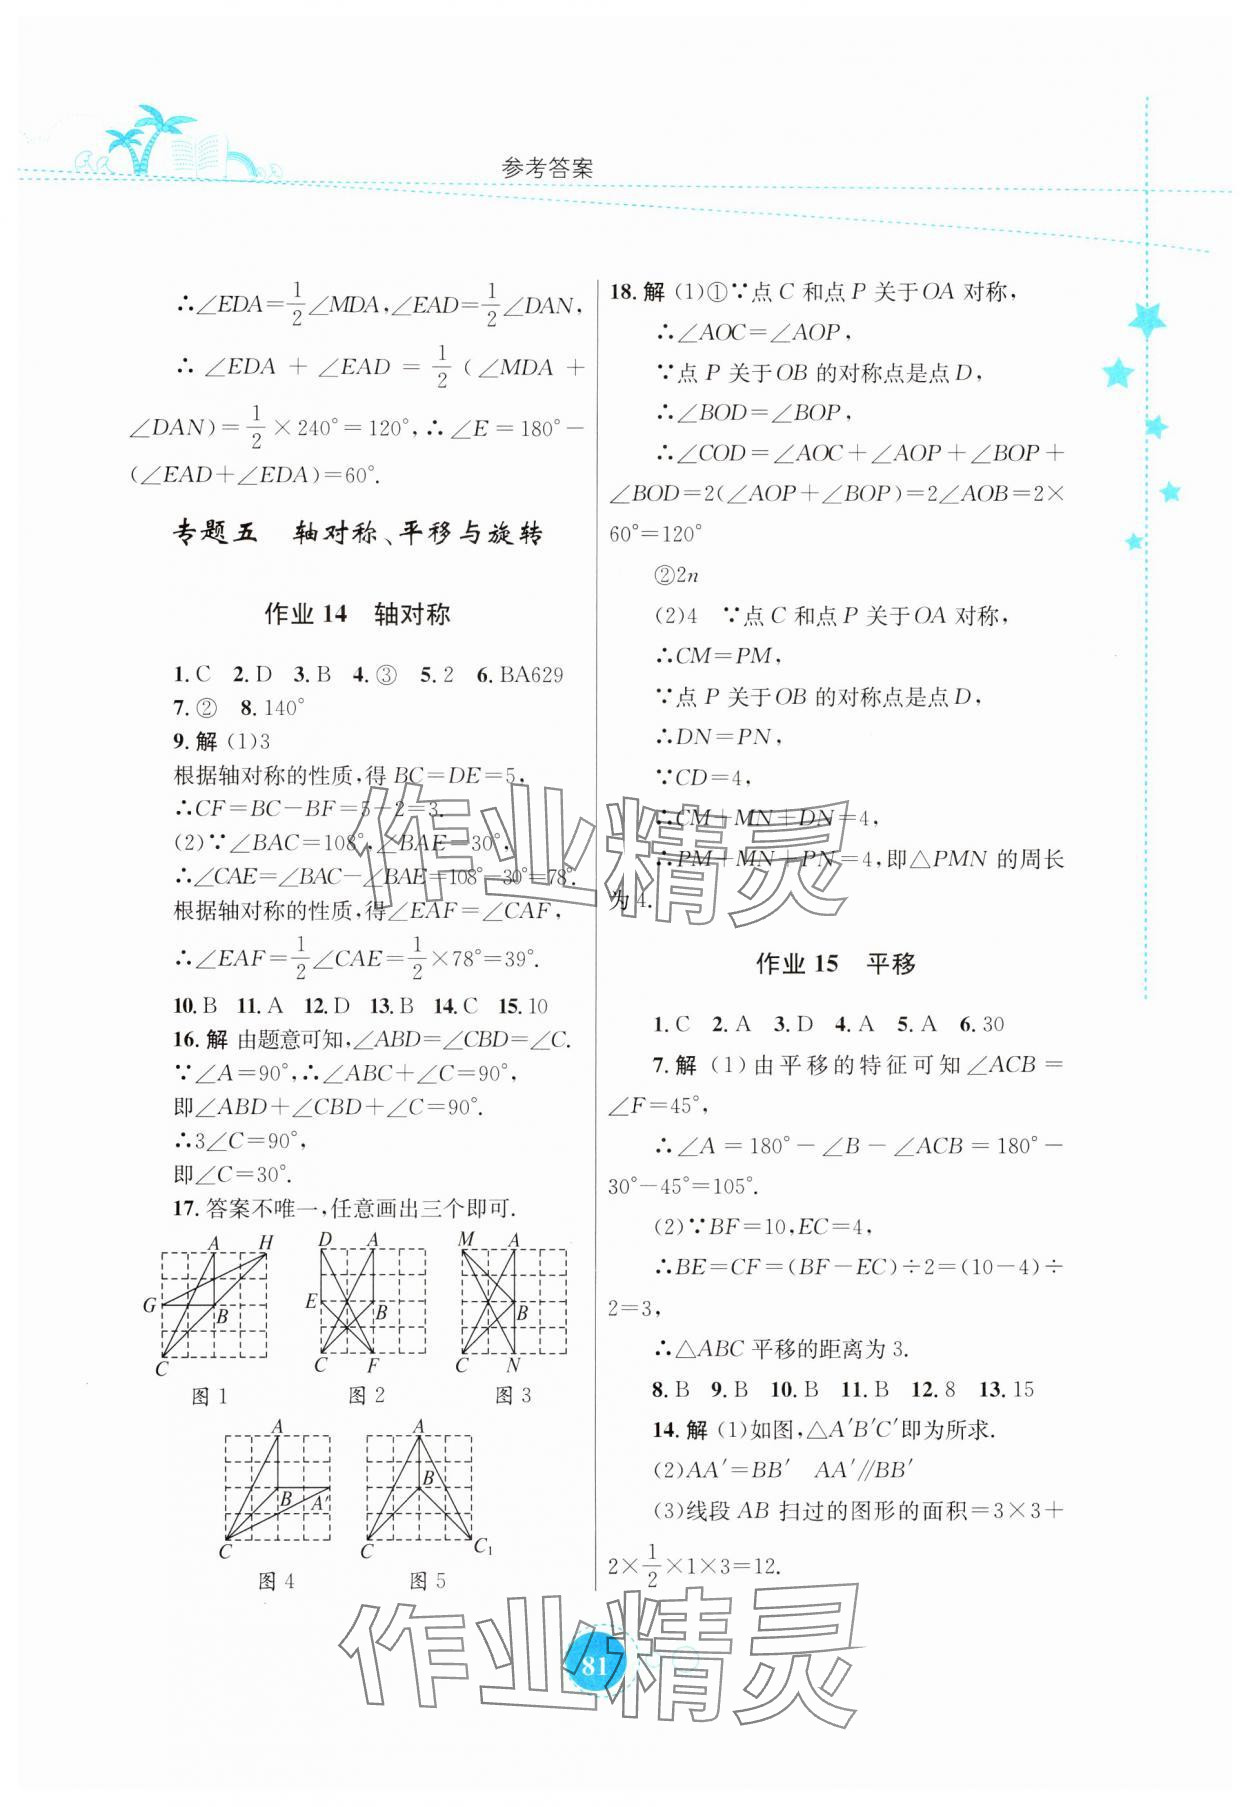 参考答案
∴∠EDA=1/2∠MDA,∠EAD=1/2∠DAN,
∴∠EDA+∠EAD=1/2(∠MDA+
∠DAN)=1/2×240°=120°,∴∠E=180°-
(∠EAD+∠EDA)=60°.
专题五 轴对称、平移与旋转
作业14 轴对称
1.C 2.D 3.B 4.③ 5.2 6.BA629
7.② 8.140°
9.解 (1)3
根据轴对称的性质,得BC=DE=5,
∴CF=BC-BF=5-2=3.
(2)∵∠BAC=108°,∠BAE=30°,
∴∠CAE=∠BAC-∠BAE=108°-30°=78°.
根据轴对称的性质,得∠EAF=∠CAF,
∴∠EAF=1/2∠CAE=1/2×78°=39°.
10.B 11.A 12.D 13.B 14.C 15.10
16.解 由题意可知,∠ABD=∠CBD=∠C.
∵∠A=90°,∴∠ABC+∠C=90°,
即∠ABD+∠CBD+∠C=90°.
∴3∠C=90°,
即∠C=30°.
17.答案不唯一,任意画出三个即可.
A H D A M A
G B E B B
C C F C N
图1 图2 图3
A A
B A′ B
C C C₁
图4 图5
18.解 (1)①∵点C和点P关于OA对称,
∴∠AOC=∠AOP,
∵点P关于OB的对称点是点D,
∴∠BOD=∠BOP,
∴∠COD=∠AOC+∠AOP+∠BOP+
∠BOD=2(∠AOP+∠BOP)=2∠AOB=2×
60°=120°
②2n
(2)4 ∵点C和点P关于OA对称,
∴CM=PM,
∵点P关于OB的对称点是点D,
∴DN=PN,
∵CD=4,
∴CM+MN+DN=4,
∴PM+MN+PN=4,即△PMN的周长
为4.
作业15 平移
1.C 2.A 3.D 4.A 5.A 6.30
7.解 (1)由平移的特征可知∠ACB=
∠F=45°,
∴∠A=180°-∠B-∠ACB=180°-
30°-45°=105°.
(2)∵BF=10,EC=4,
∴BE=CF=(BF-EC)÷2=(10-4)÷
2=3,
∴△ABC平移的距离为3.
8.B 9.B 10.B 11.B 12.8 13.15
14.解 (1)如图,△A′B′C′即为所求.
(2)AA′=BB′ AA′∥BB′
(3)线段AB扫过的图形的面积=3×3+
2×1/2×1×3=12.
作业精灵
作业精灵
81